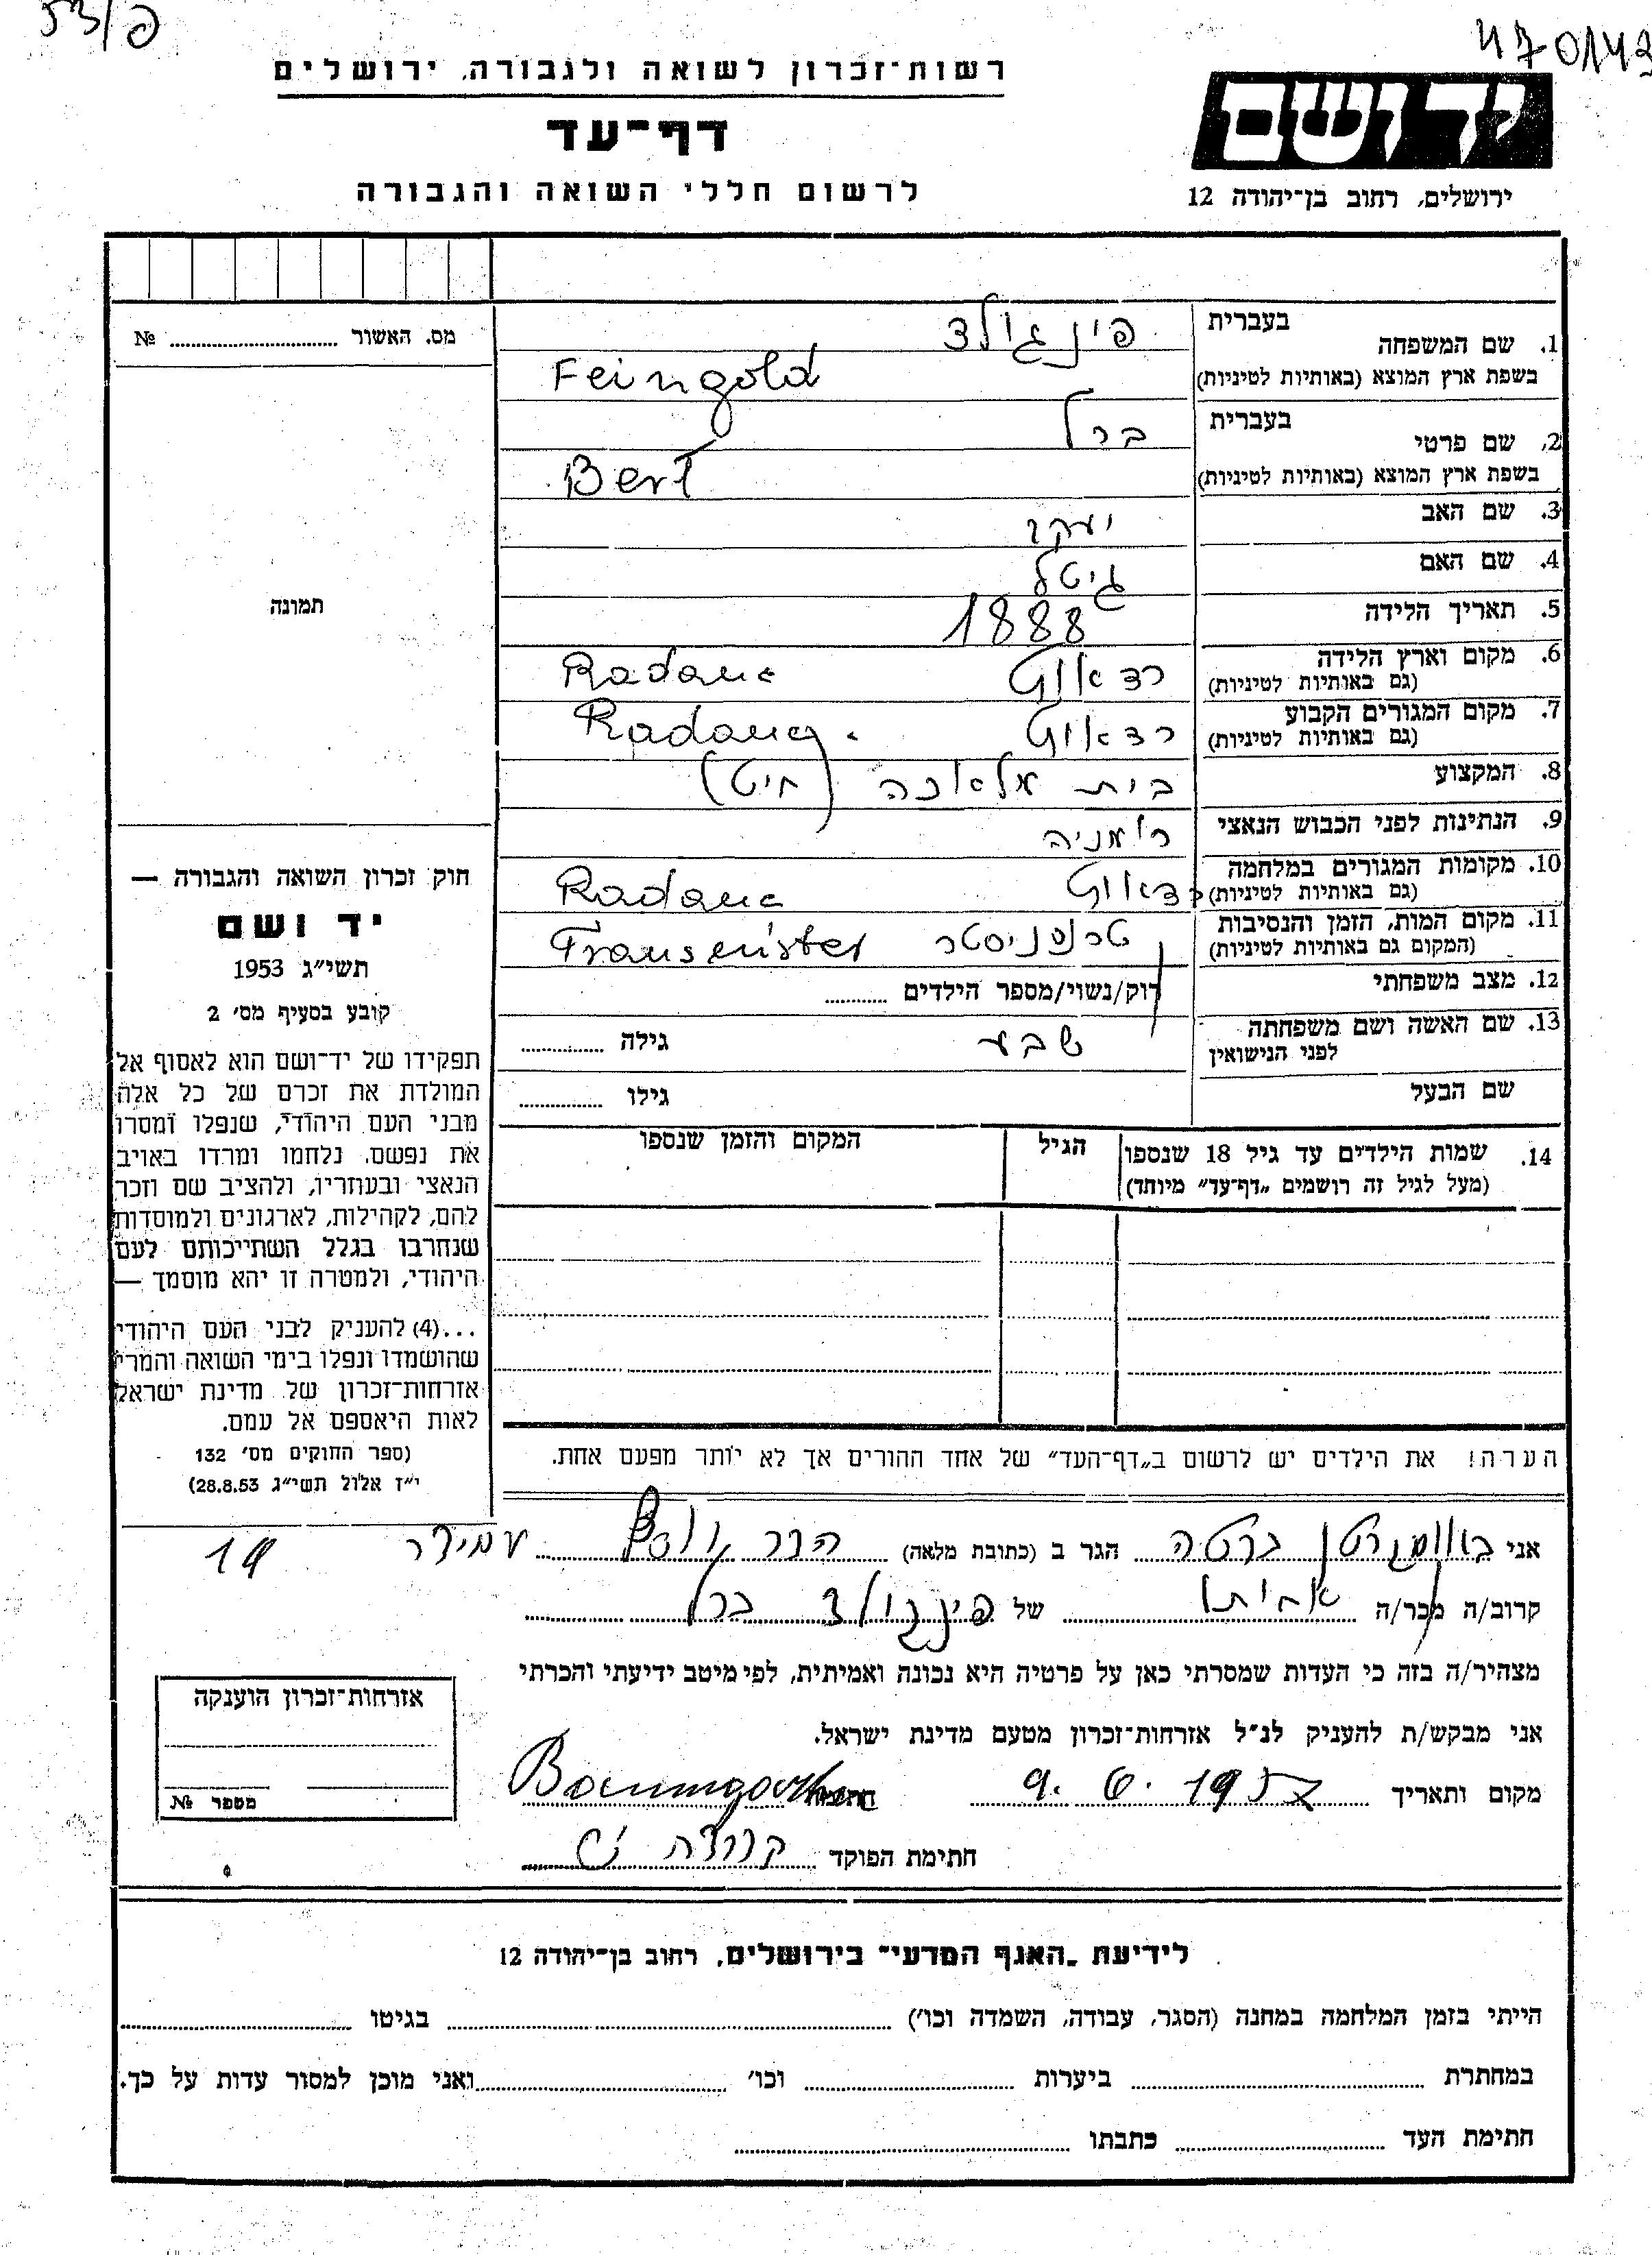 53/פ
470/43
רשות־זכרון לשואה ולגבורה, ירושלים
דף־עד
לרשום חללי השואה והגבורה
יד ושם
ירושלים, רחוב בן־יהודה 12
מס. האשור № ........
תמונה
1. שם המשפחה
בעברית פינגולד
בשפת ארץ המוצא (באותיות לטיניות) Feingold
2. שם פרטי
בעברית ברל
בשפת ארץ המוצא (באותיות לטיניות) Berl
3. שם האב יעקב
4. שם האם גיטל
5. תאריך הלידה 1888
6. מקום וארץ הלידה
(גם באותיות לטיניות) רדאוץ Radauc
7. מקום המגורים הקבוע
(גם באותיות לטיניות) רדאוץ Radauc.
8. המקצוע בית מלאכה (חיט)
9. הנתינות לפני הכבוש הנאצי רומניה
10. מקומות המגורים במלחמה
(גם באותיות לטיניות) רדאוץ Radauc
11. מקום המות, הזמן והנסיבות
(המקום גם באותיות לטיניות) טרנסניסטר Transnister
12. מצב משפחתי רוק/נשוי/מספר הילדים ........
13. שם האשה ושם משפחתה
לפני הנישואין שבע גילה ........
שם הבעל גילו ........
14. שמות הילדים עד גיל 18 שנספו הגיל המקום והזמן שנספו
(מעל לגיל זה רושמים „דף־עד” מיוחד)
הערה! את הילדים יש לרשום ב„דף־העד” של אחד ההורים אך לא יותר מפעם אחת.
חוק זכרון השואה והגבורה —
יד ושם
תשי״ג 1953
קובע בסעיף מס׳ 2
תפקידו של יד־ושם הוא לאסוף אל
המולדת את זכרם של כל אלה
מבני העם היהודי, שנפלו ומסרו
את נפשם, נלחמו ומרדו באויב
הנאצי ובעוזריו, ולהציב שם וזכר
להם, לקהילות, לארגונים ולמוסדות
שנחרבו בגלל השתייכותם לעם
היהודי, ולמטרה זו יהא מוסמך —
...(4) להעניק לבני העם היהודי
שהושמדו ונפלו בימי השואה והמרי
אזרחות־זכרון של מדינת ישראל
לאות היאספם אל עמם.
(ספר החוקים מס׳ 132
י״ז אלול תשי״ג 28.8.53)
אני באומגרטן ברטה הגר ב (כתובת מלאה) עמידר 19
קרוב/ה מכר/ה אחיתו של פינגולד ברל
מצהיר/ה בזה כי העדות שמסרתי כאן על פרטיה היא נכונה ואמיתית, לפי מיטב ידיעתי והכרתי
אני מבקש/ת להעניק לנ״ל אזרחות־זכרון מטעם מדינת ישראל.
מקום ותאריך 9. 6. 1957 חתימה Baumgarten
חתימת הפוקד
אזרחות־זכרון הוענקה
מספר №
לידיעת „האגף המדעי” בירושלים, רחוב בן־יהודה 12
הייתי בזמן המלחמה במחנה (הסגר, עבודה, השמדה וכו׳) ........ בגיטו ........
במחתרת ........ ביערות ........ וכו׳ ........ ואני מוכן למסור עדות על כך.
חתימת העד ........ כתבתו ........